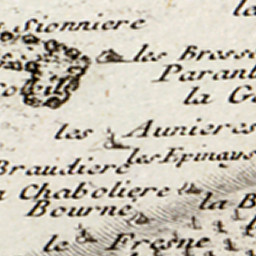 la
les Bress
Paran
la G
les Aunieres
Braudiere
les Epinays
a Chaboliere
la B
Bourné
le Fresne